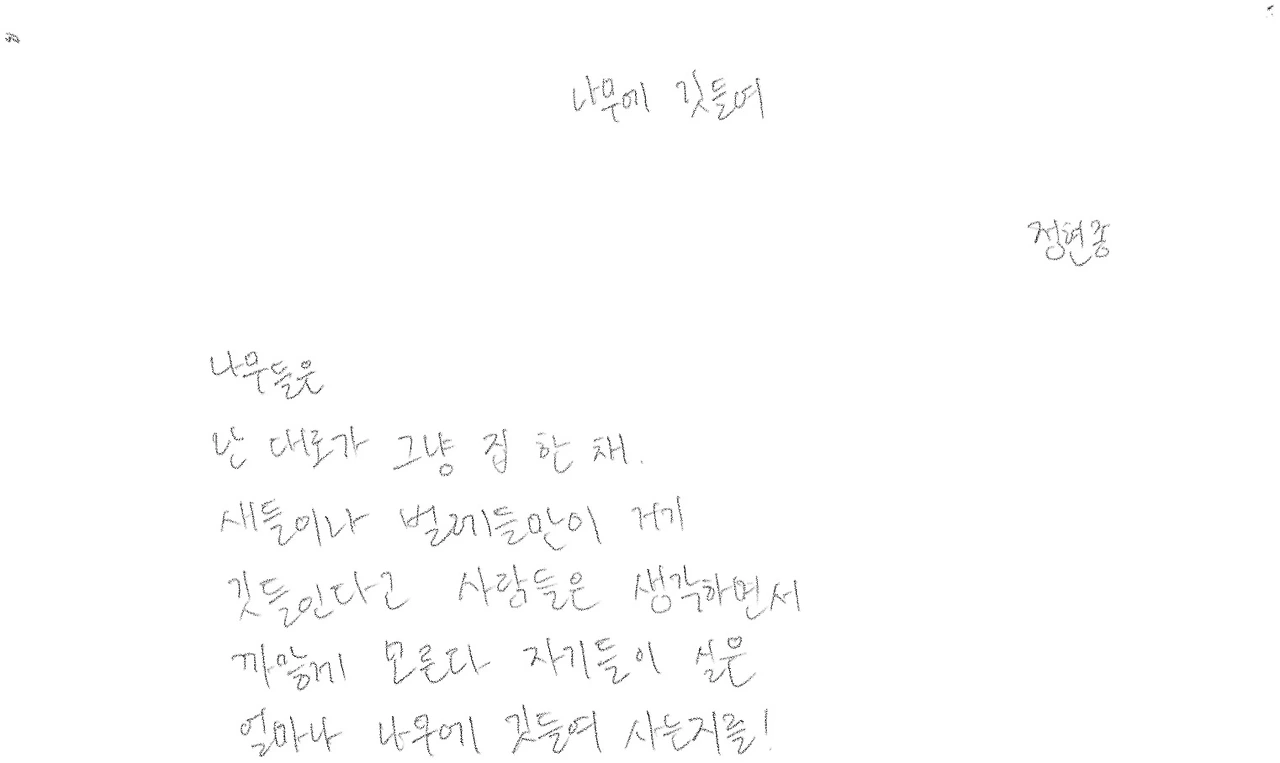 나무에 깃들여
정현종
나무들은
난 대로가 그냥 집 한 채.
새들이나 벌레들만이 거기
깃들인다고 사람들은 생각하면서
까맣게 모른다 자기들이 실은
얼마나 나무에 깃들여 사는지를!